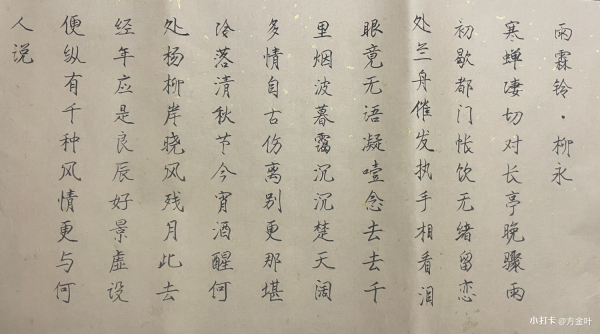 雨霖铃·柳永
寒蝉凄切对长亭晚骤雨
初歇都门帐饮无绪留恋
处兰舟催发执手相看泪
眼竟无语凝噎念去去千
里烟波暮霭沉沉楚天阔
多情自古伤离别更那堪
冷落清秋节今宵酒醒何
处杨柳岸晓风残月此去
经年应是良辰好景虚设
便纵有千种风情更与何
人说
小打卡@方金叶